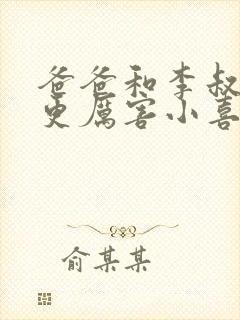 爸爸和李叔
更厉害小喜
俞某某